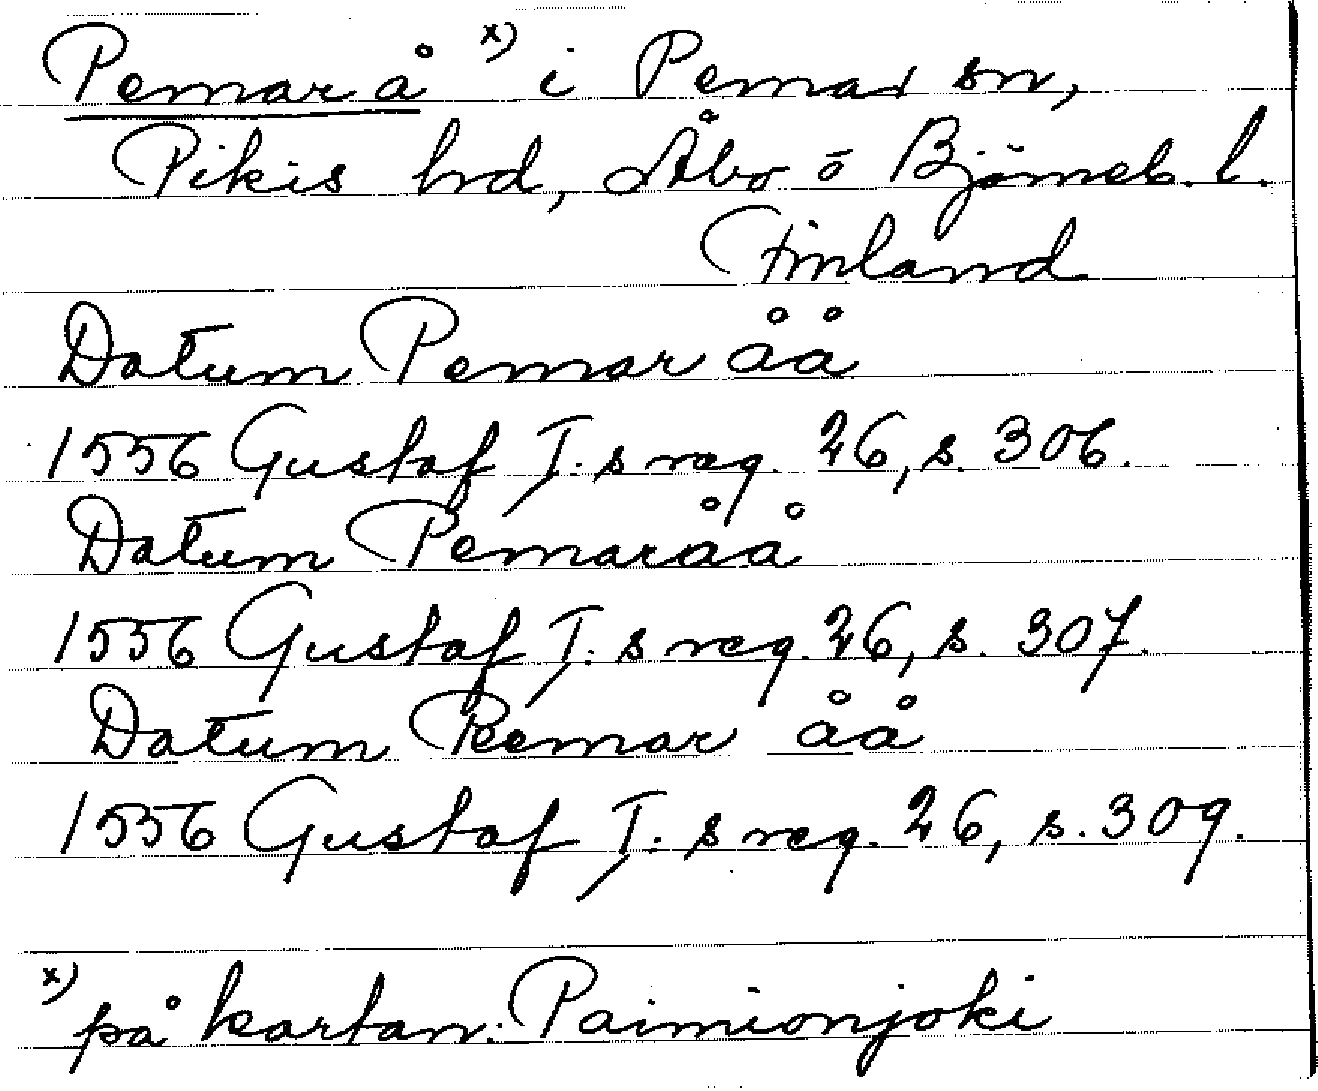 Pemar å x) i Pemar sn,
Pikis hd, Åbo o Björneb. l.
Finland
Datum Pemar åå
1556 Gustaf I:s reg. 26, s. 306.
Datum Pemaråå
1556 Gustaf I:s reg. 26, s. 307.
Datum Pemar åå
1556 Gustaf I:s reg. 26, s. 309.
x) på kartan: Paimionjoki